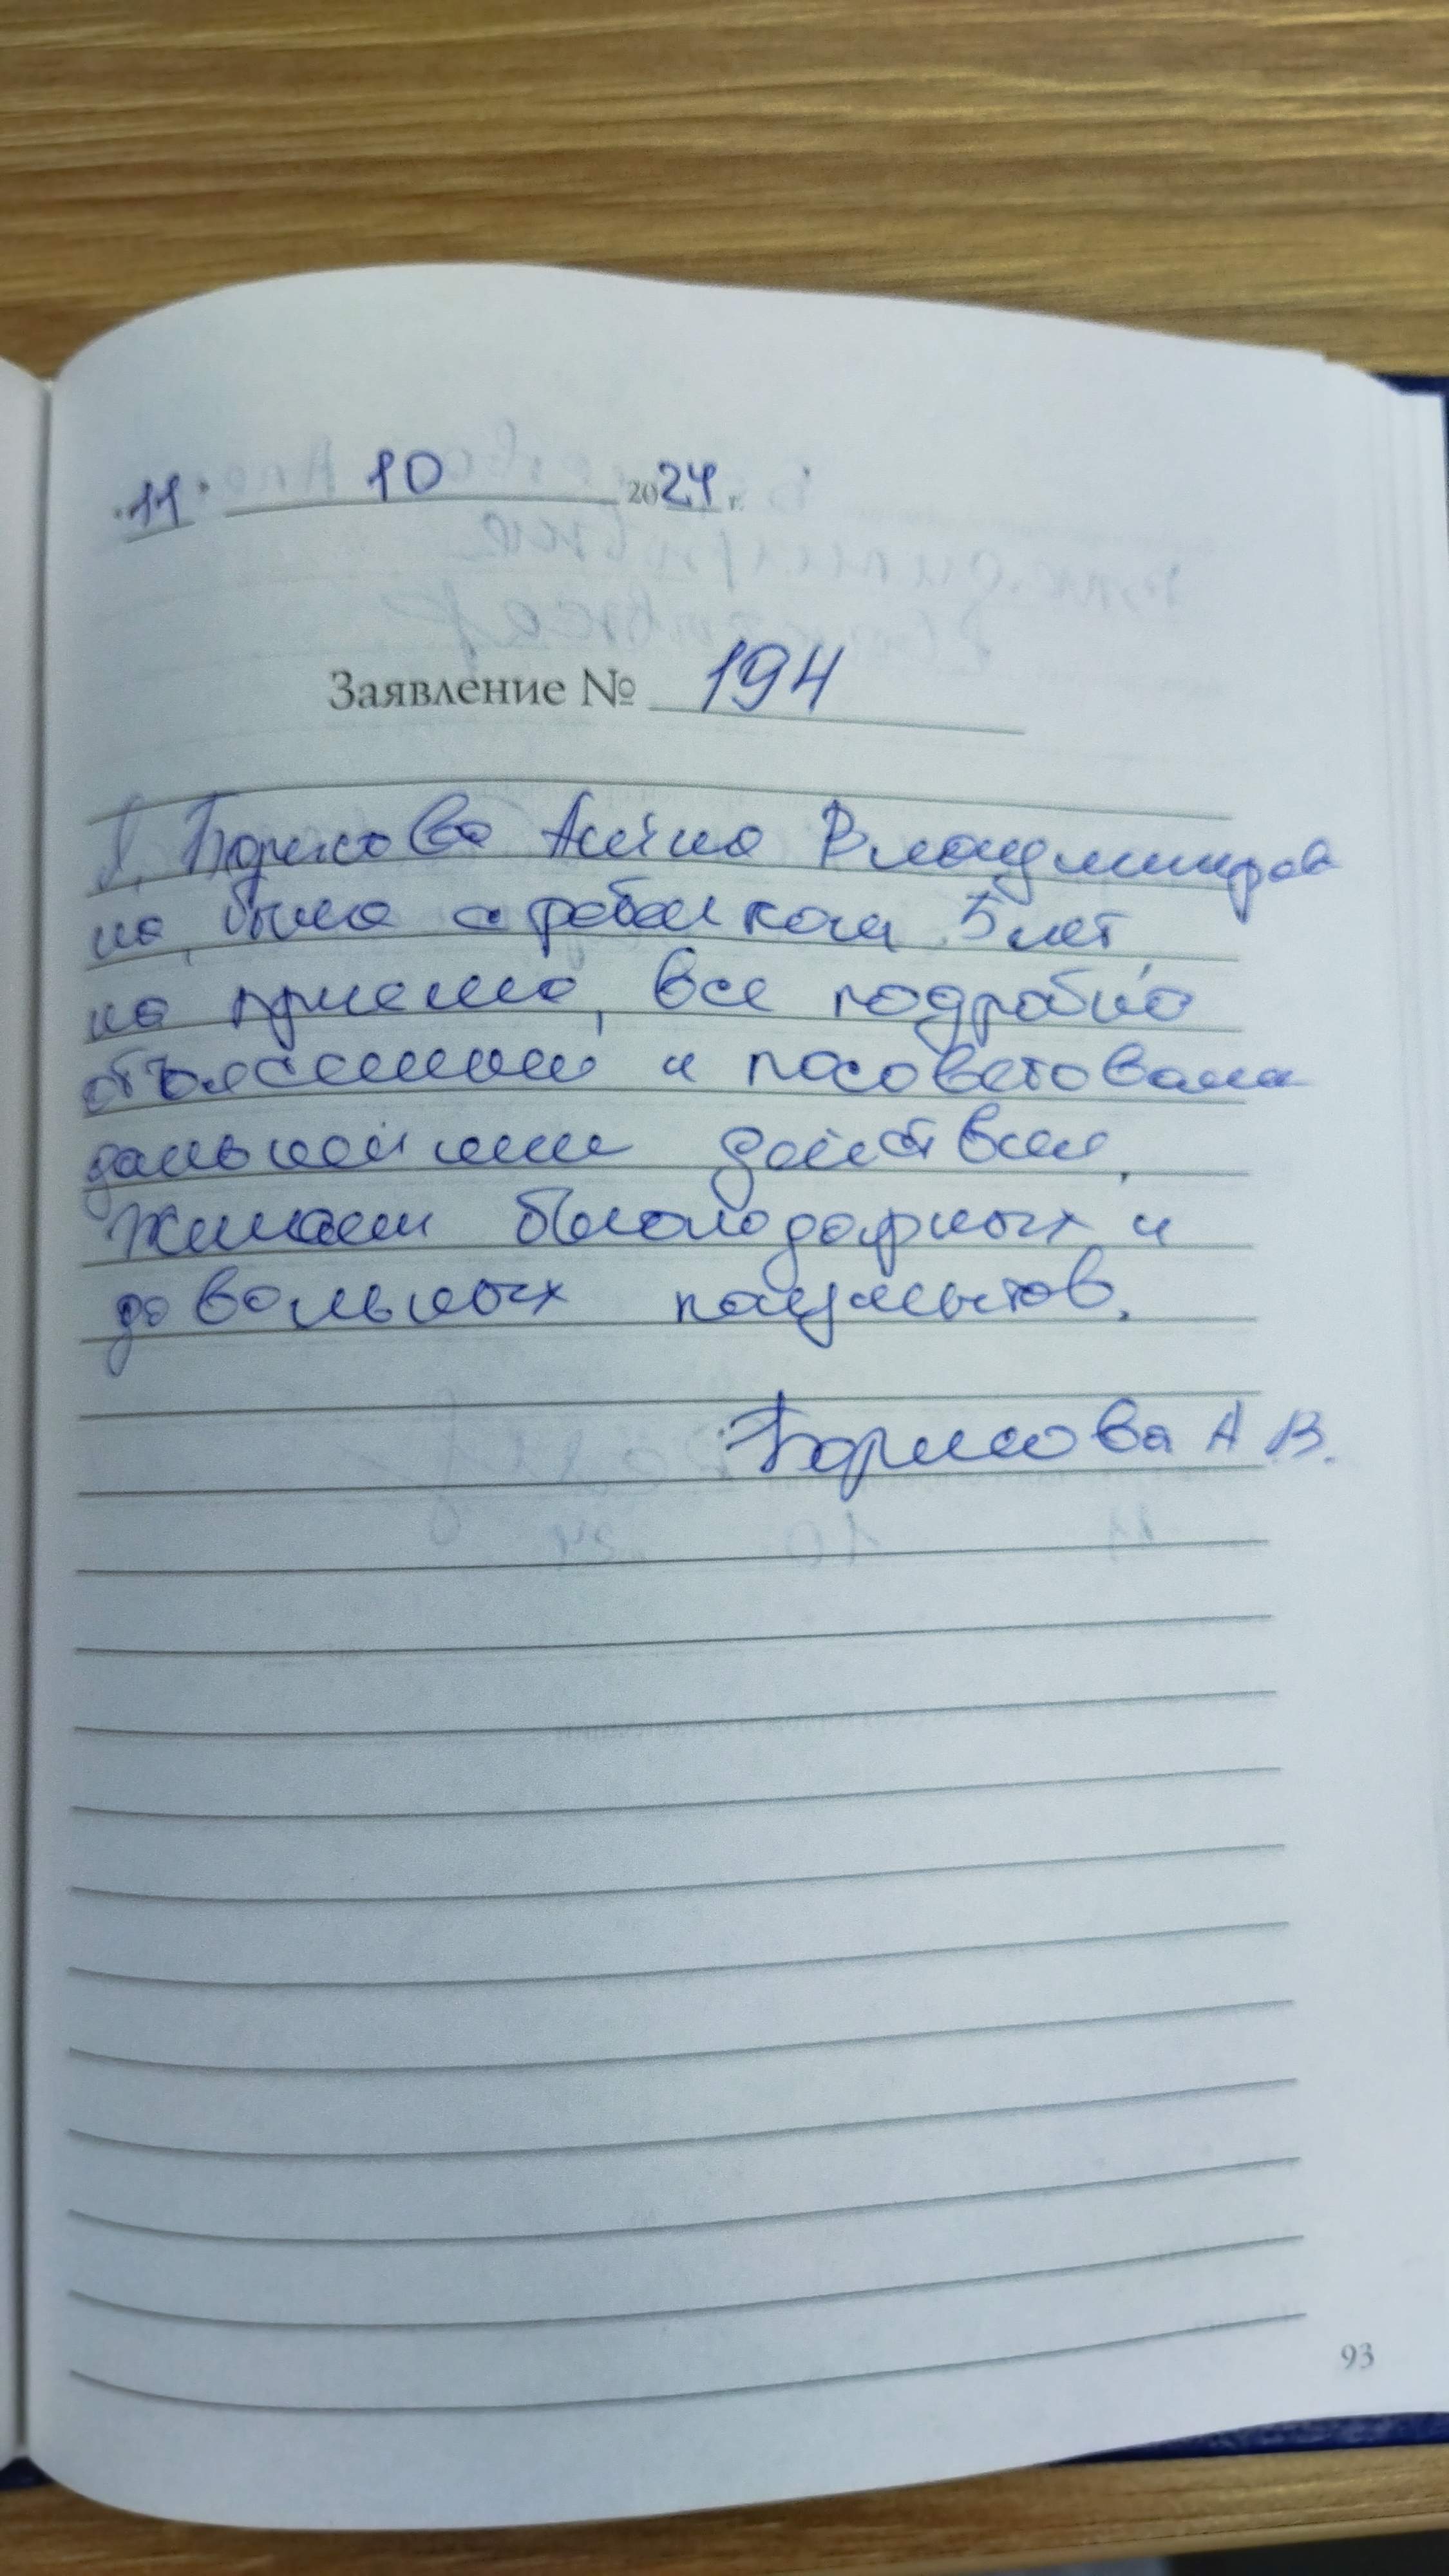 "11" 10 2024 г.
Заявление № 194
Я, Борисова Алёна Владимиров
на, была с ребёнком 5 лет
на приеме, все подробно
объяснили и посоветовали
дальнейшие действия.
Желаем благодарных и
довольных пациентов.
Борисова А В.
93